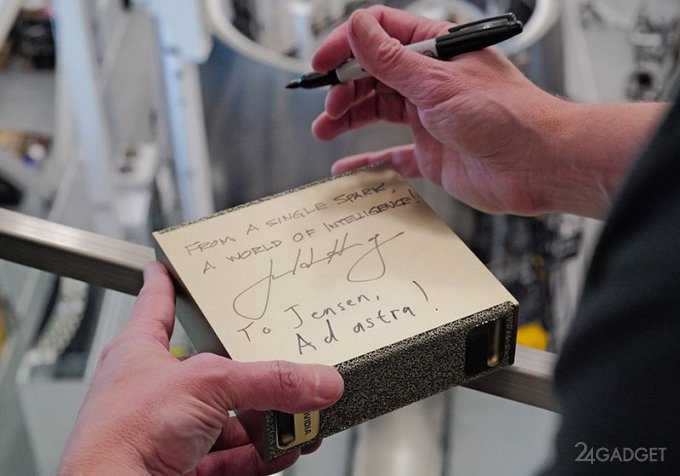 FROM A SINGLE SPARK,
A WORLD OF INTELLIGENCE!
To Jensen,
Ad astra!
NVIDIA
24GADGET